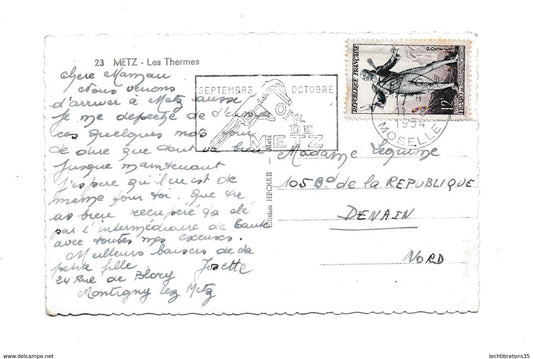 23 METZ - Les Thermes
Chère Maman
Nous venons
d'arriver à Metz aussi
Je me depeche de t'écrire
ces quelques mots pour
te dire que tout va bien
Jusque maintenant
J'espere qu'il en est de
meme pour toi. Que tu
as bien recuperé ta clé
par l'intermédiaire de
avec toutes mes excuses.
Meilleurs baisers de ta
petite fille Josette
24 Rue de Blory
Montigny lez Metz
Edition HECKER - Metz
SEPTEMBRE OCTOBRE
FOIRE
DE
METZ
REPUBLIQUE FRANÇAISE
12F
POSTES
1954
MOSELLE
Madame Lequime
105 Bd de la REPUBLIQUE
DENAIN
NORD
www.delcampe.net
lechtibretons35